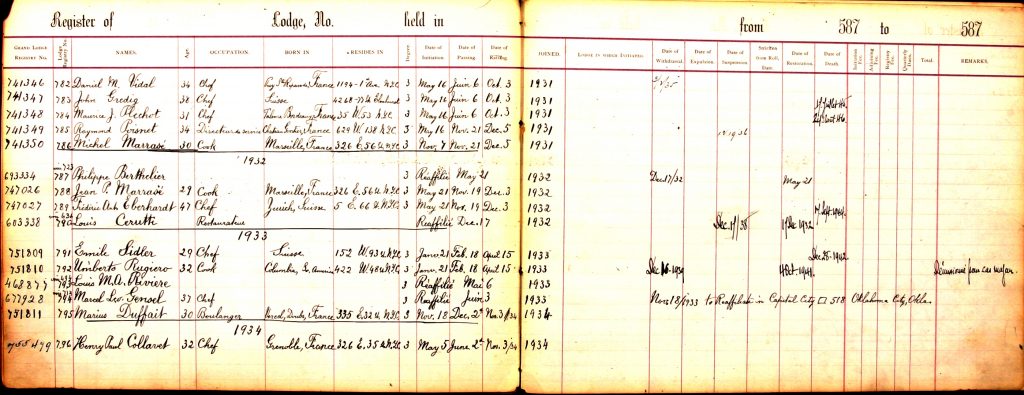 Register of Lodge, No. held in from 587 to 587
GRAND LODGE REGISTRY NO. Lodge Registry No. NAMES. Age OCCUPATION. BORN IN RESIDES IN Degree Date of Initiation Date of Passing Date of Raising JOINED. LODGE IN WHICH INITIATED. Date of Withdrawal Date of Expulsion. Date of Suspension Stricken from Roll, Date Date of Restoration. Date of Death Initiation Fee. Adjoining Fee. Registry Fee. Quarterly Dues. Total. REMARKS.
741346 782 Daniel M. Vidal 34 Chef France 1194-1st Ave. N.Y.C. 3 May 16 Juin 6 Oct. 3 1931
741347 783 John Gredig 38 Chef Suisse 3 May 16 Juin 6 Oct. 3 1931
741348 784 Maurice J. Plechot 31 Chef France 35 W 53 N.Y.C. 3 May 16 Juin 6 Oct. 3 1931
741349 785 Raymond Poisnet 34 France 629 W 138 N.Y.C. 5 May 16 Nov. 21 Dec. 5 1931 1936
741350 786 Michel Marrasé 30 Cook Marseille, France 326 E. 56 St N.Y.C. 3 Nov. 7 Nov. 21 Dec. 5 1931
1932
693334 787 Philippe Berthelier 3 Réaffilié May 21 1932 Dec 17/32 May 21
747026 788 Jean P. Marrasé 29 Cook Marseille, France 326 E. 56 St N.Y.C. 3 May 21 Nov. 19 Dec. 3 1932
747027 789 Eberhardt 47 Chef Zurich, Suisse 5 E. 66 St N.Y.C. 3 May 21 Nov. 19 Dec. 3 1932
603338 790 Louis Cerutti Restaurateur Réaffilié Dec. 17 1932 Dec. 17/38
1933
751809 791 Emile Sidler 29 Chef Suisse 152 W. 93 St N.Y.C. 3 Janv. 21 Feb. 18 April 15 1933 Dec. 25-1942
751810 792 Umberto Rugiero 32 Cook Columbia, S. America 422 W 48 St N.Y.C. 3 Janv. 21 Feb. 18 April 15 1933 Oct. 1941
468877 793 Louis M.A. Rivière 3 Réaffilié Mai 6 1933
677928 794 Marcel Gensel 37 Chef 3 Réaffilié Juin 3 1933 Nov. 18/1933 to Reaffiliate in Capital City 518 Oklahoma City, Okla.
751811 795 Marius Duffait 30 Boulanger France 335 E. 32 St N.Y.C. 3 Nov. 18 Dec. 2nd Nov. 3/34 1934
1934
755479 796 Henry Paul Collavet 32 Chef Grenoble, France 326 E. 35 St N.Y.C. 3 May 5 June 2nd Nov. 3/34 1934